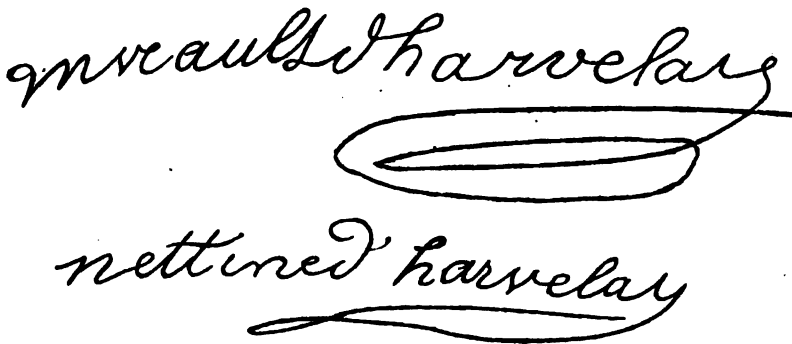 mveault d'harvelay
nettine d'harvelay